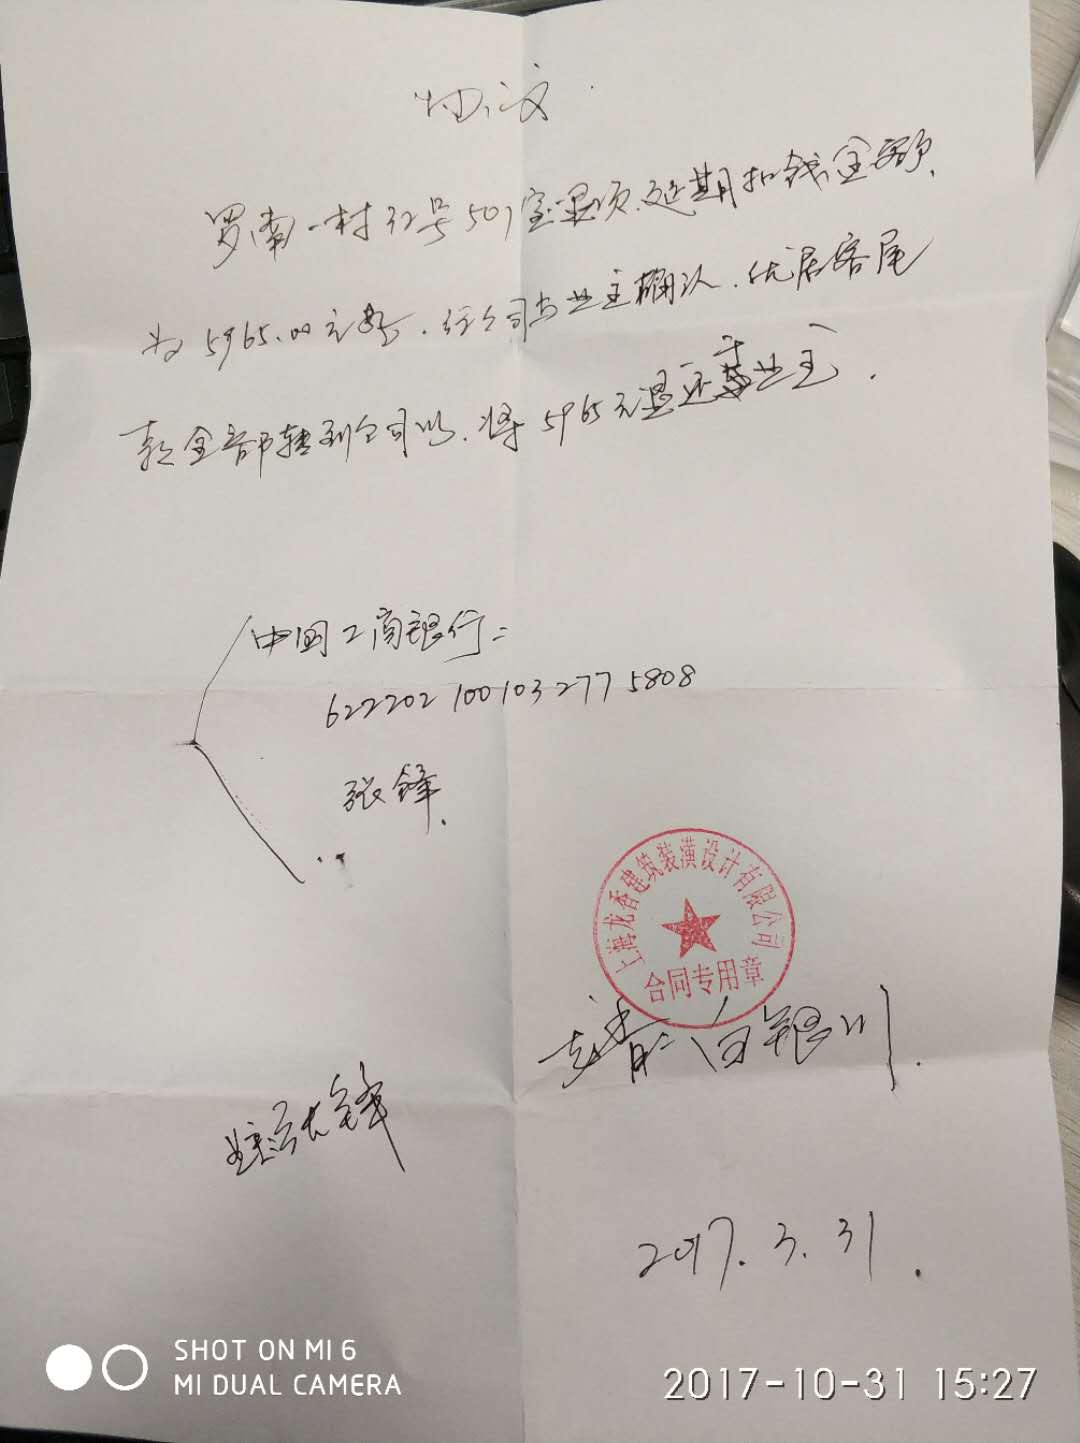 协议
罗南一村32号501室 延期扣钱金额
为5965.00元整.经公司与业主确认.优居客尾
款全部转到公司以.将5965元退还于业主.
中国工商银行:
622202 100103277 5808
张锋.
上海龙香建筑装潢设计有限公司
合同专用章
白银川.
张锋
2017.3.31.
SHOT ON MI 6
MI DUAL CAMERA
2017-10-31 15:27